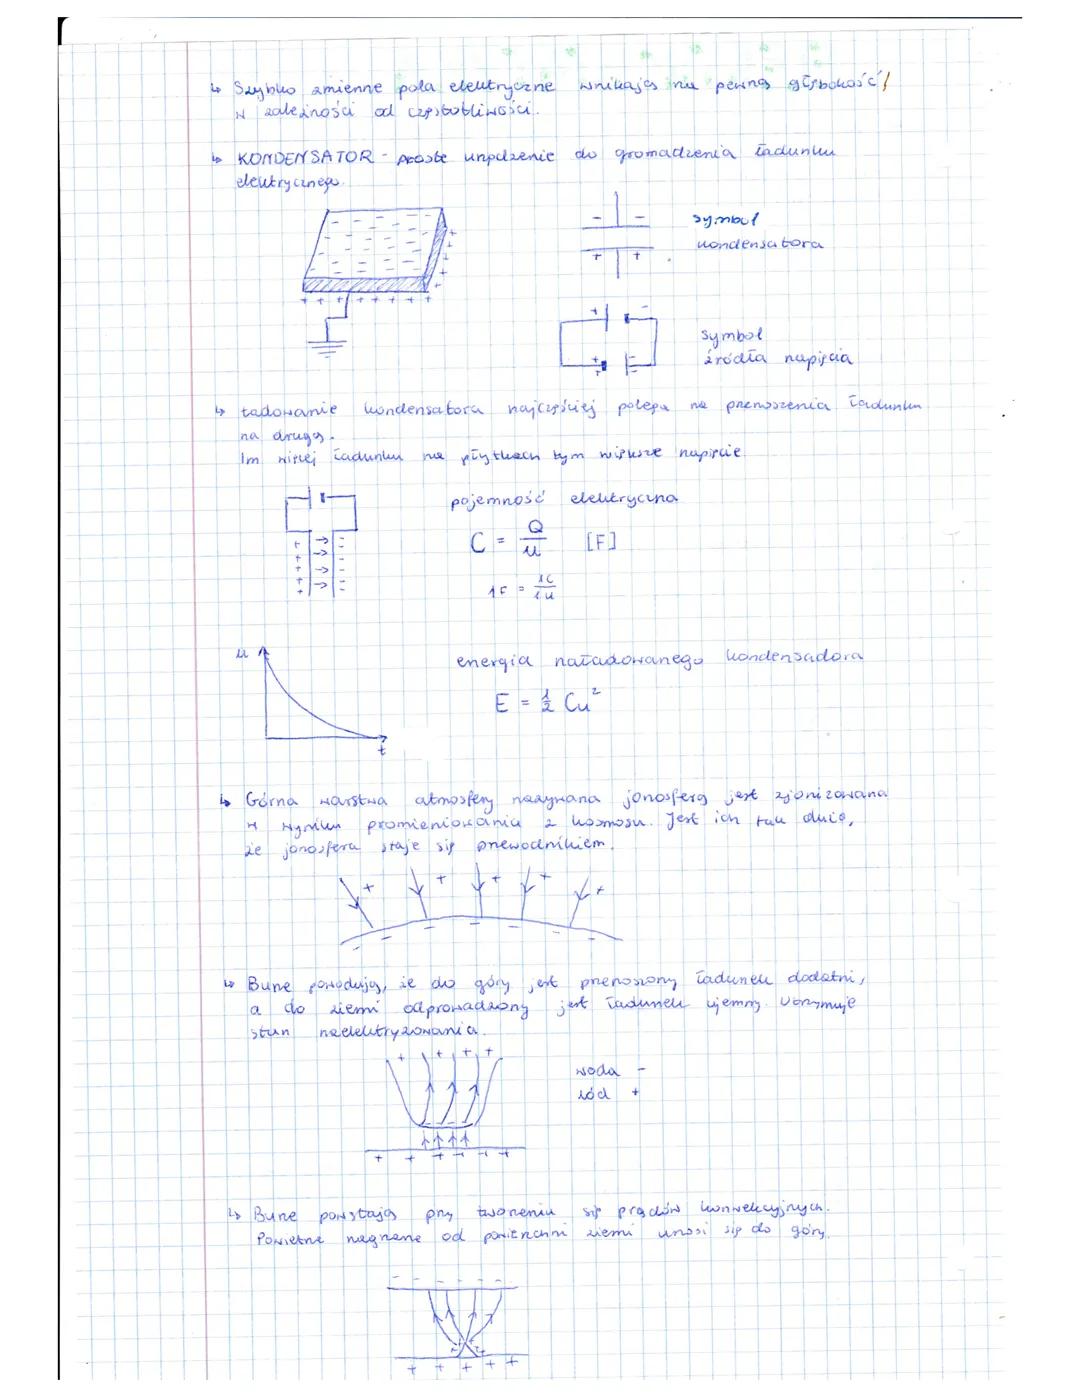 ↳ Szybko zmienne pola elektryczne wnikają na pewną głębokość
w zależności od częstotliwości.
↳ KONDENSATOR - proste urządzenie do gromadzenia ładunku
elektrycznego.
symbol
kondensatora
symbol
źródła napięcia
↳ Ładowanie kondensatora najczęściej polega na przenoszenia ładunku
na drugą.
Im więcej ładunku na płytkach tym większe napięcie.
pojemność elektryczna
C = Q/u [F]
1F = 1C/1u
u
t
energia naładowanego kondensadora
E = 1/2 Cu²
↳ Górna warstwa atmosfery nazywana jonosferą jest zjonizowana
w wyniku promieniowania z kosmosu. Jest ich tak dużo,
że jonosfera staje się przewodnikiem.
↳ Burze powodują, że do góry jest przenoszony ładunek dodatni,
a do ziemi odprowadzony jest ładunek ujemny. Utrzymuje
stan naelektryzowania.
woda -
lód +
↳ Burze powstają przy tworzeniu się prądów konwekcyjnych.
Powietrze nagrzane od powierzchni ziemi unosi się do góry.